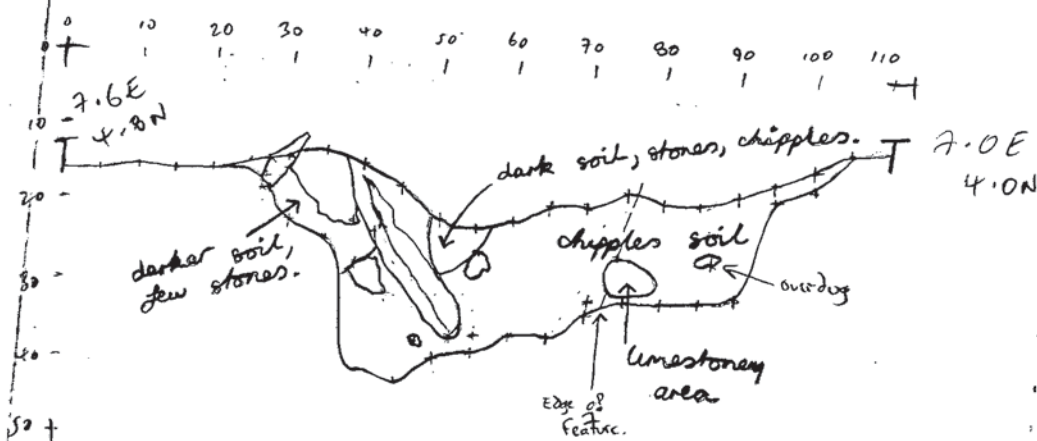 0 10 20 30 40 50 60 70 80 90 100 110
0
10
20
30
40
50
7.6E
4.8N
7.0E
4.0N
dark soil, stones, chipples.
darker soil,
few stones.
chipples soil
overdug
limestoney
area
Edge of
Feature.